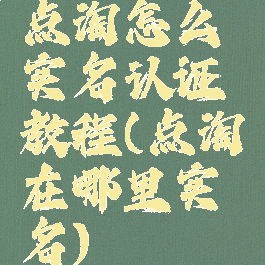 点淘怎么
实名认证
教程(点淘
在哪里实
名)